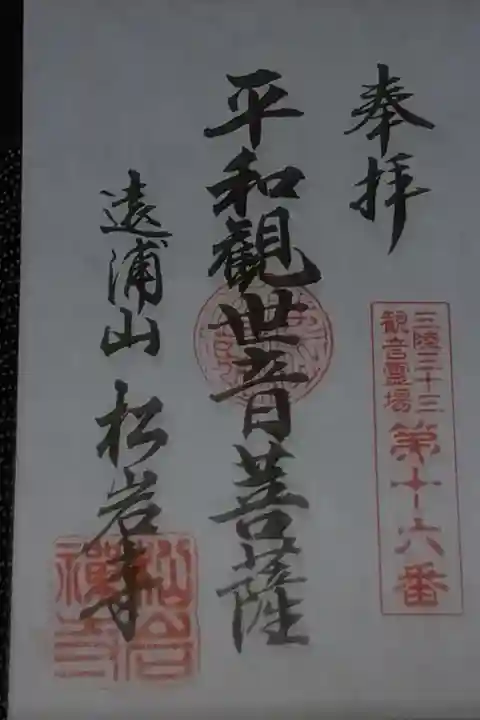 奉拝
三陸三十三
観音霊場
第十六番
平和觀世音菩薩
遠浦山 松岩寺